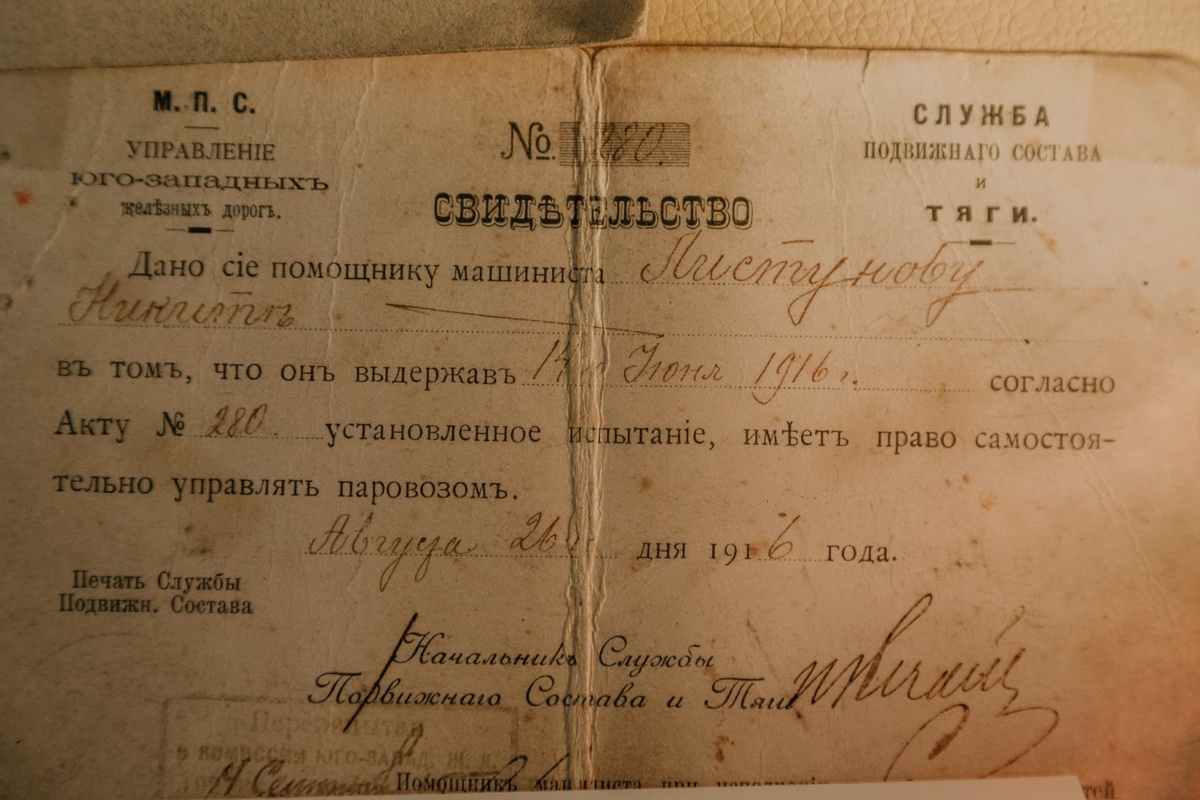 М. П. С.
УПРАВЛЕНІЕ
ЮГО-ЗАПАДНЫХЪ
желѣзныхъ дорогъ.
№ 280.
СЛУЖБА
ПОДВИЖНАГО СОСТАВА
и
ТЯГИ.
СВИДѢТЕЛЬСТВО
Дано сіе помощнику машиниста Листунову
Никитѣ
въ томъ, что онъ выдержавъ Іюня 1916 г. согласно
Акту № 280 установленное испытаніе, имѣетъ право самостоя-
тельно управлять паровозомъ.
Августа 26 дня 1916 года.
Печать Службы
Подвижн. Состава
Начальникъ Службы
Подвижнаго Состава и Тяги
В КОМИССИИ ЮГО-ЗАПАД. Ж. Д.
Помощникъ машиниста при